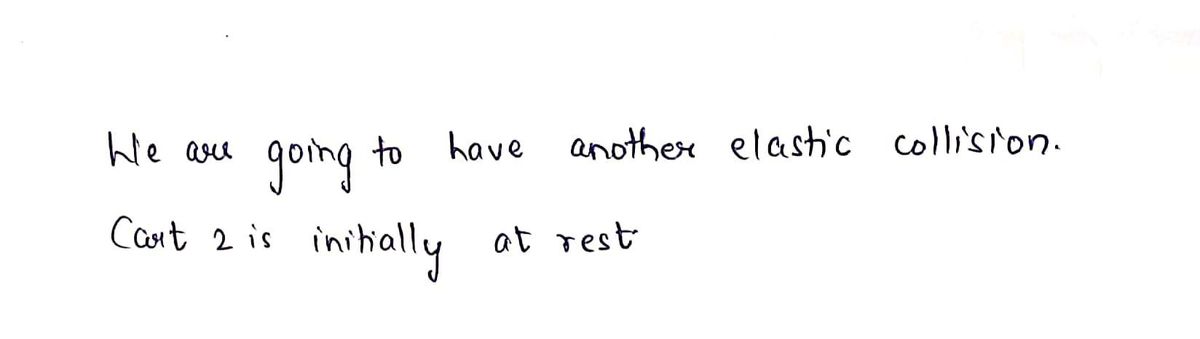 We are going to have another elastic collision.
Cart 2 is initially at rest